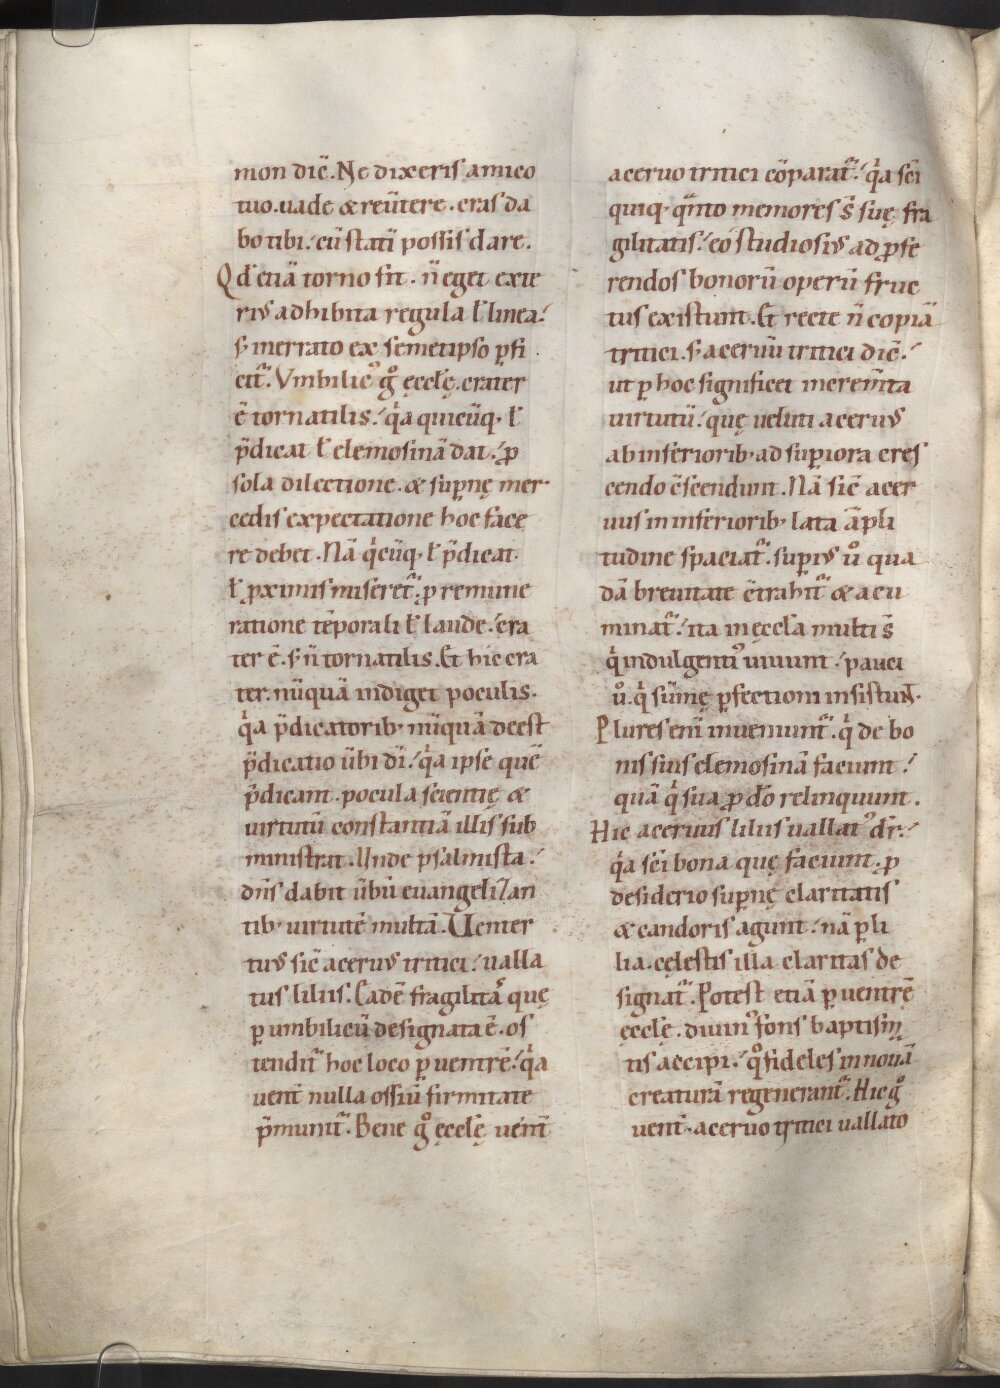 mon dic̄. Ne dixeris amico
tuo. uade & reũtere. cras da
bo tibi. cū statī possis dare.
Qd̄ etiā torno fit. n̄ eget exte
riꝰ adhibita regula ł linea.
s; inerrato ex semetipso ꝑfi
citͬ. Vmbilicꝰ gͦ ęcclę̄. crater
ē tornatilis. qͥa quicūq; ł
p̄dicat ł elemosinā dat. ꝓ
sola dilectione. & supnę mer
cedis expectatione hoc face
re debet. Nā qͥcūq; ł p̄dicat.
ł ꝓximis miseretͬ. ꝓ remune
ratione tēporali ł laude. cra
ter ē. s; n̄ tornatilis. Et hic cra
ter. nūquā indiget poculis.
qͥa p̄dicatorib; nūquā deest
p̄dicatio ūbi dī. qͥa ipse que̅
p̄dicant. pocula scientię &
uirtutū constantiā illis sub
ministrat. Unde psalmista.
dn̄s dabit ūbū euangelizan
tib; uirtutē multā. Uenter
tuꝰ sic̄ aceruꝰ tritici. ualla
tus liliis. Eadē fragilitaͣs quę
ꝑ umbilicū designata ē. os
tenditͬ hoc loco ꝑ uentrē. qͥa
uent̄ nulla ossiū firmitate
p̄munitͬ. Bene gͦ ęcclę̄ uent̄
aceruo tritici cōparatͬ. qͥa sc̄i
quiq; qͣnto memores s̄ suę fra
gilitatis. eo studiosiꝰ ad ꝓfe
rendos bonorū operū fruc
tus existunt. Et recte n̄ copiā
tritici. s; aceruū tritici dic̄.
ut ꝑ hoc significet increm̄ta
uirtutū. quę ueluti aceruꝰ
ab inferiorib; ad supiora cres
cendo c̄scendunt. Nā sic̄ acer
uus in inferiorib; lata āpli
tudine spaciatͬ. supiꝰ ůo qua
dā breuitate c̄trahitͬ & acu
minatͬ. ita in ęccl̄a multi s̄
qͥ indulgentiꝰ uiuunt. pauci
uͦ. qͥ sūmę ꝑfectioni insistunt.
Plures enī inueniuntͬ. qͥ de bo
nis suis elemosinā faciunt.
quā qͥ sua ꝓ dō relinquunt.
Hic aceruus liliis uallatꝰ dr̄.
qͥa sc̄i bona quę faciunt. ꝓ
desiderio supnę claritatis
& candoris agunt. nā ꝑ li
lia. cęlestis illa claritas de
signatͬ. Potest etiā ꝑ uentrē
ęcclę̄. diuinꝰ fons baptism
tis accipi. qͦ fideles in nouā
creaturā regenerantͬ. Hic gͦ
uent̄. aceruo tritici uallato